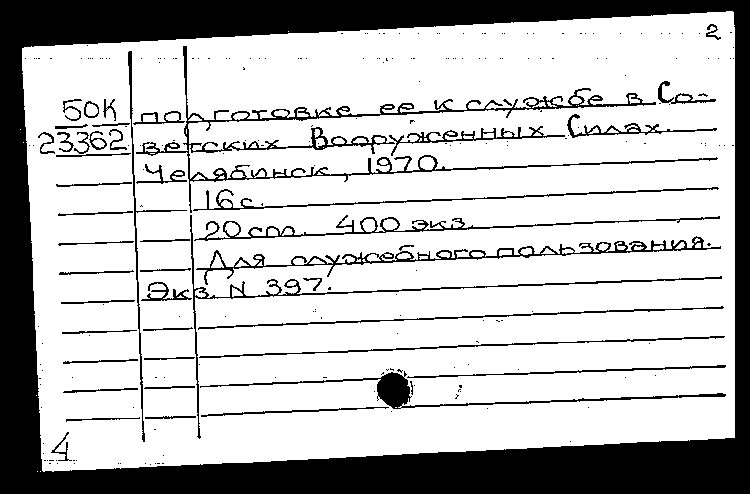 2
50К подготовке ее к службе в Со-
23362 ветских Вооруженных Силах.
Челябинск, 1970.
16 с.
20 см. 400 экз.
Для служебного пользования.
Экз. N 397.
4